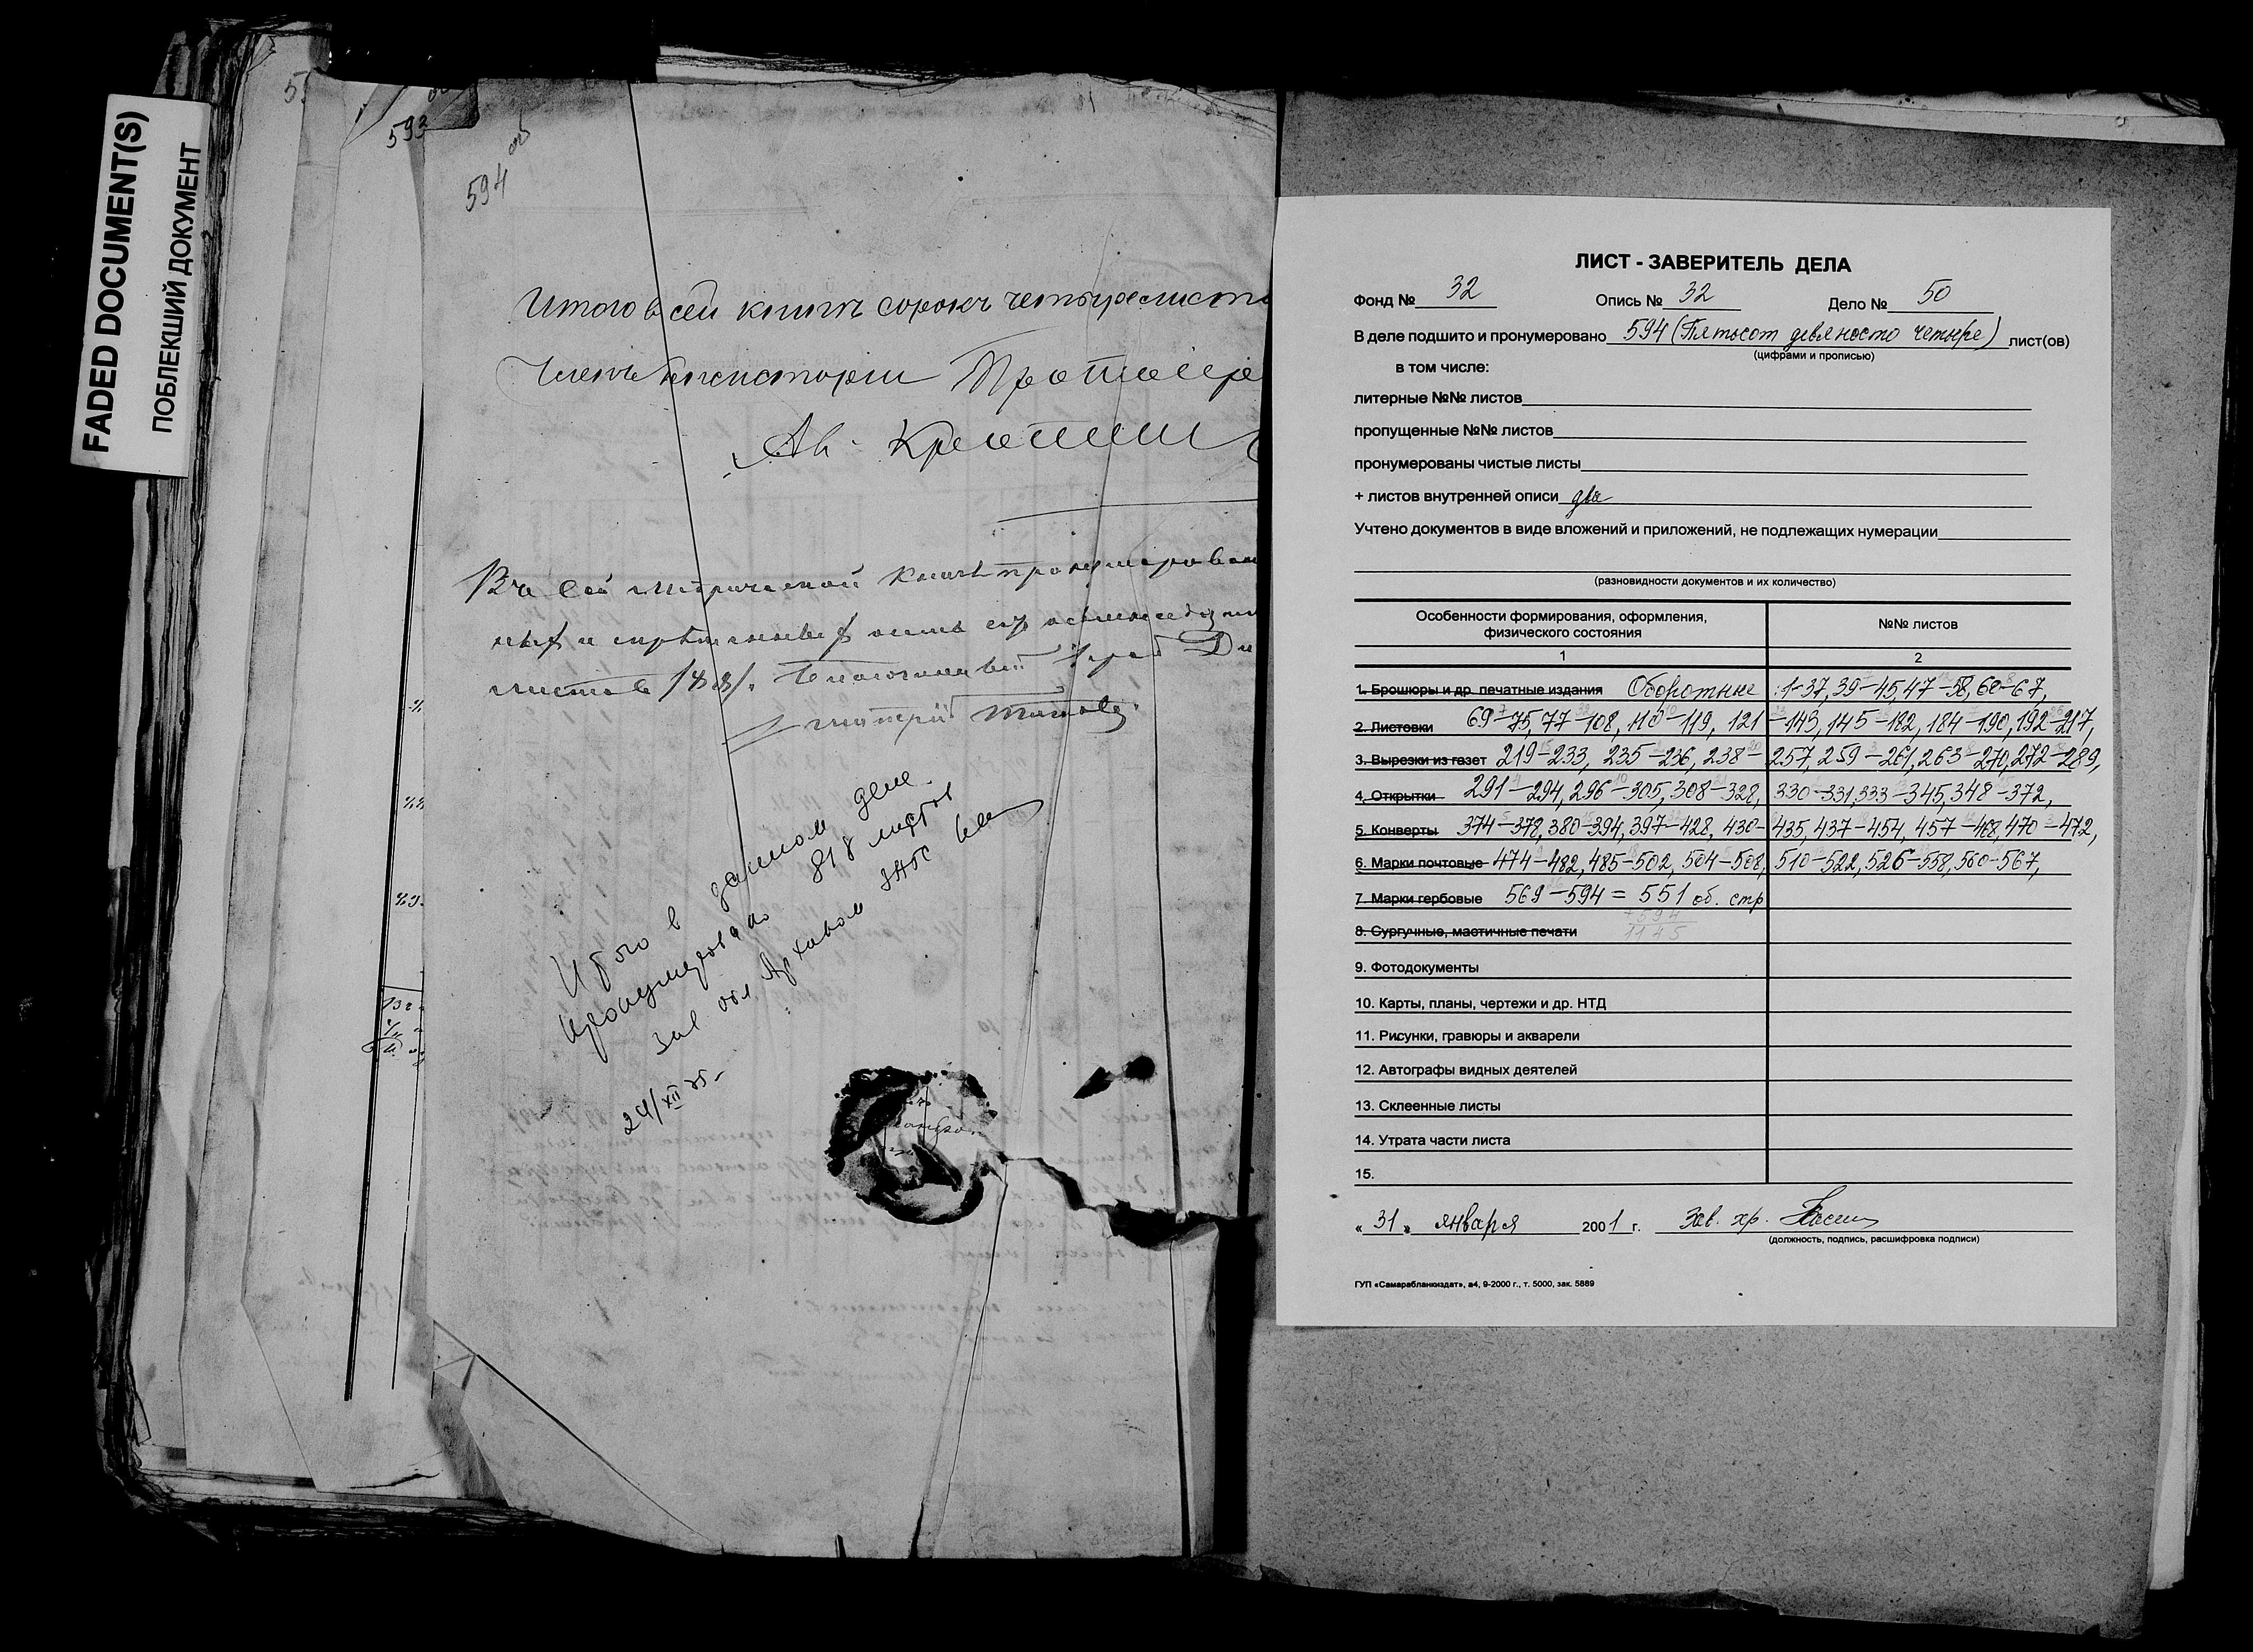 FADED DOCUMENT(S)
ПОБЛЕКШИЙ ДОКУМЕНТ
593
594 об
Итого в сей книгѣ сорокъ четыре листа
Членъ Консисторіи Протоіере
Ав. Кр
Въ сей метрической книгѣ пронумерован
ныхъ и
листовъ /88/. Благочинный Iерей Ди
митрій
Итого в данном деле
пронумеровано 818 листов
Зав обл. Архивом
24/XII 35
ЛИСТ - ЗАВЕРИТЕЛЬ ДЕЛА
Фонд № 32 Опись № 32 Дело № 50
В деле подшито и пронумеровано 594 (Пятьсот девяносто четыре) лист(ов)
(цифрами и прописью)
в том числе:
литерные №№ листов
пропущенные №№ листов
пронумерованы чистые листы
+ листов внутренней описи два
Учтено документов в виде вложений и приложений, не подлежащих нумерации
(разновидности документов и их количество)
Особенности формирования, оформления, физического состояния №№ листов
1 2
1. Брошюры и др. печатные издания Оборотные: 1-37, 39-45, 47-58, 60-67,
2. Листовки 69-75, 77-108, 110-119, 121-143, 145-182, 184-190, 192-217,
3. Вырезки из газет 219-233, 235-236, 238-257, 259-261, 263-270, 272-289,
4. Открытки 291-294, 296-305, 308-328, 330-331, 333-345, 348-372,
5. Конверты 374-378, 380-394, 397-428, 430-435, 437-454, 457-468, 470-472,
6. Марки почтовые 474-482, 485-502, 504-508, 510-522, 526-558, 560-567,
7. Марки гербовые 569-594 = 551 об. стр
+594
8. Сургучные, мастичные печати 1145
9. Фотодокументы
10. Карты, планы, чертежи и др. НТД
11. Рисунки, гравюры и акварели
12. Автографы видных деятелей
13. Склеенные листы
14. Утрата части листа
15.
« 31 » января 2001 г. Зав. хр.
(должность, подпись, расшифровка подписи)
ГУП «Самарабланкиздат», а4, 9-2000 г., т. 5000, зак. 5889